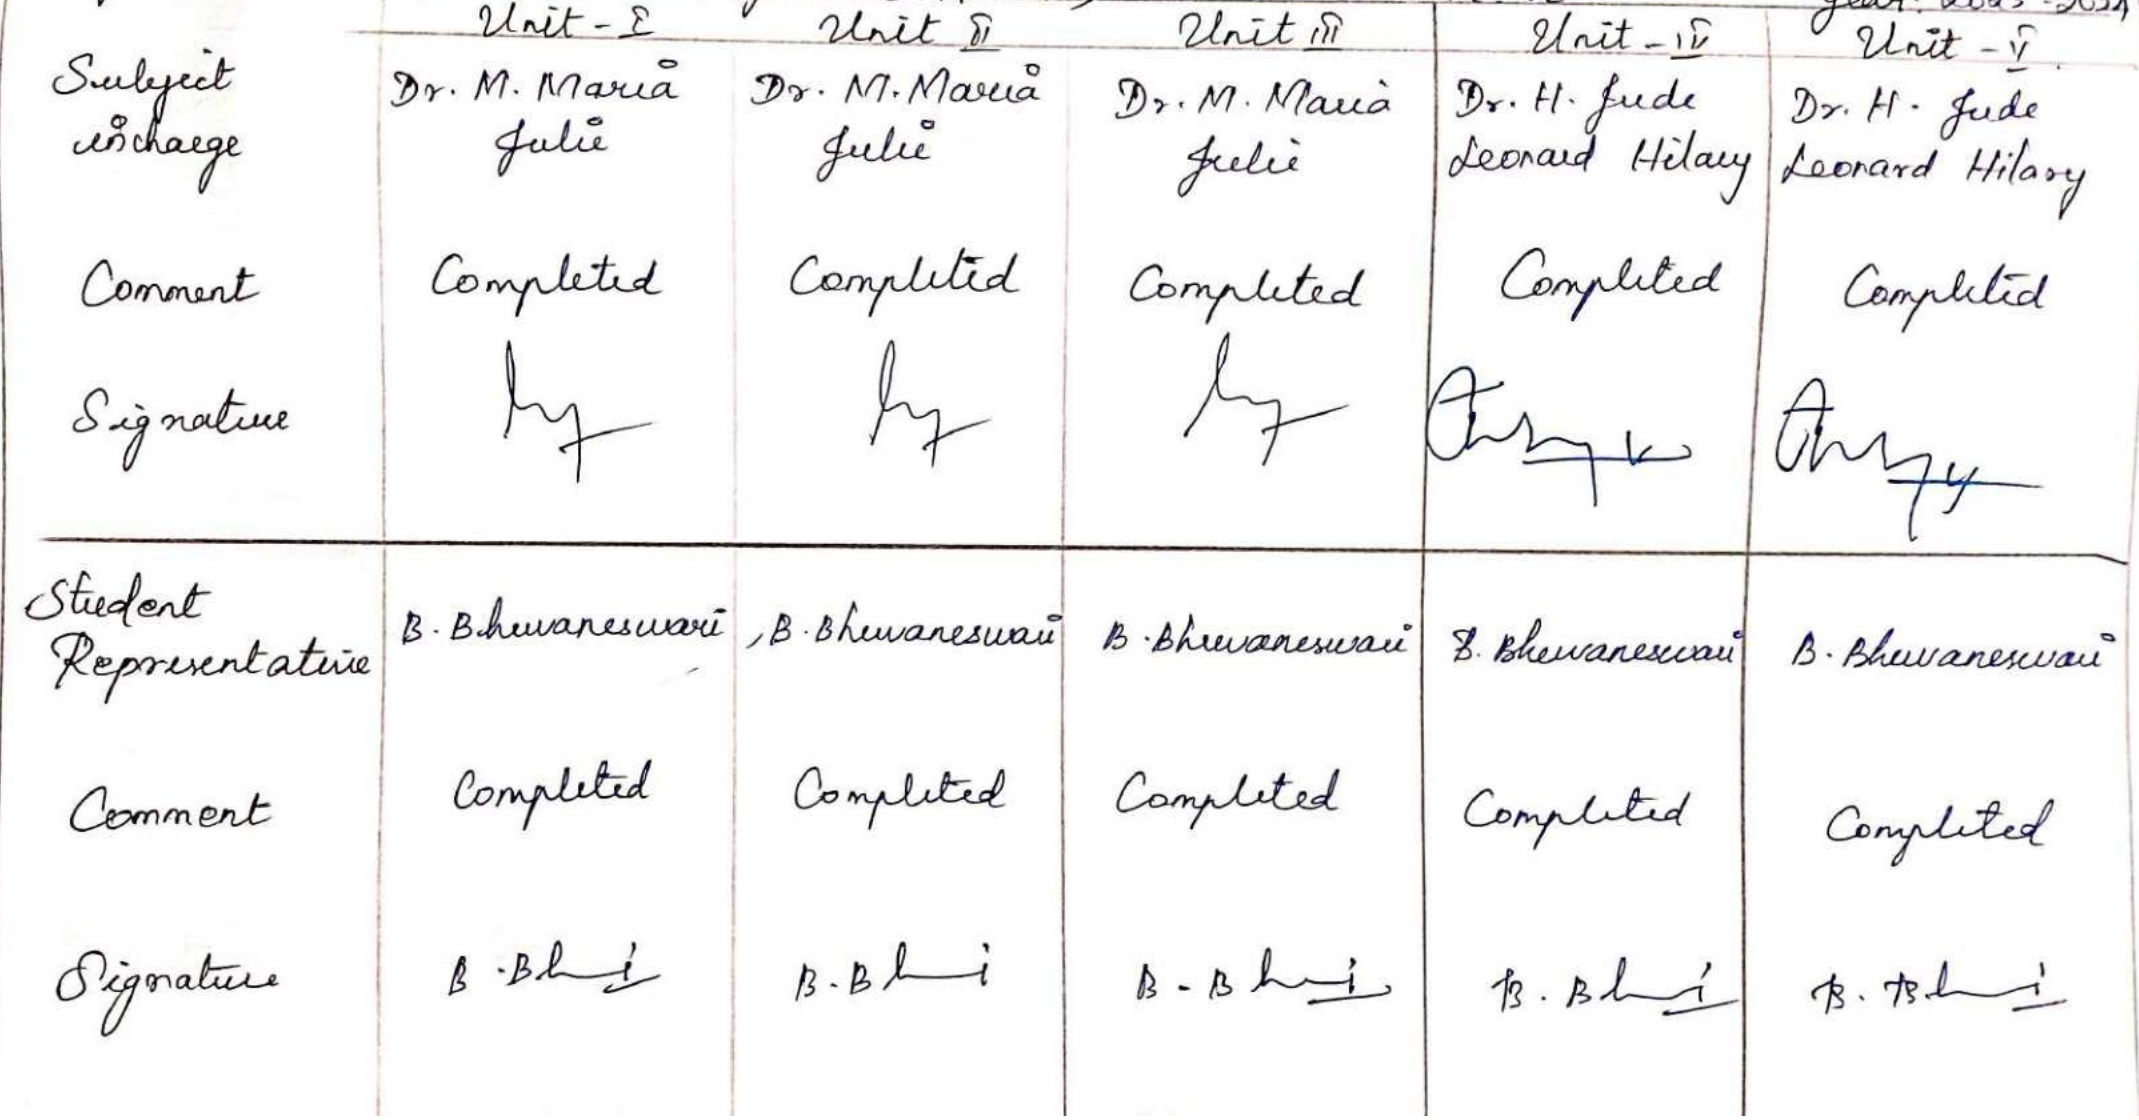 Unit - I Unit II Unit III Unit - IV Unit - V
Subject Dr. M. Maria Dr. M. Maria Dr. M. Maria Dr. H. Jude Dr. H. Jude
incharge Julie Julie Julie Leonard Hilary Leonard Hilary
Comment Completed Completed Completed Completed Completed
Signature
Student
Representative B. Bhuvaneswari B. Bhuvaneswari B. Bhuvaneswari B. Bhuvaneswari B. Bhuvaneswari
Comment Completed Completed Completed Completed Completed
Signature